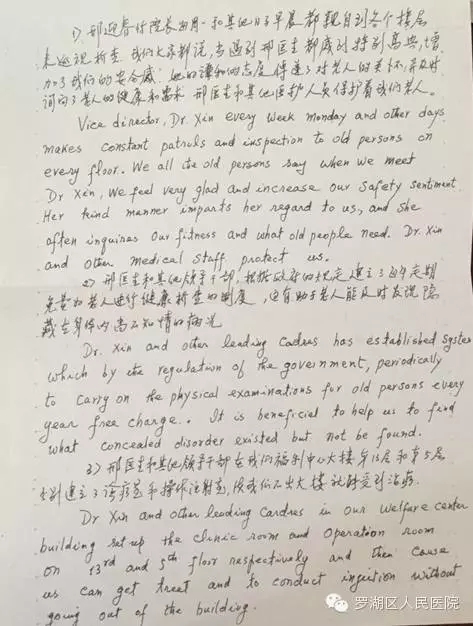 1). 邢迎春付院长每周一和其他日子早晨都亲自到各个楼层
来巡视检查. 我们大家都说, 当遇到邢医生都感到特别高兴, 增
加了我们的安全感. 她的谭和的态度传递了对老人的关怀, 并及时
询问了老人的健康和需求. 邢医生和其他医护人员保护着我们老人.
Vice director, Dr. Xin every week monday and other days
makes constant patruls and inspection to old persons on
every floor. We all the old persons say when we meet
Dr Xin, We feel very glad and increase our safety sentiment.
Her kind manner imparts her regard to us, and she
often inquires Our fitness and what old people need. Dr. Xin
and other medical staff protect us.
2) 邢医生和其他领导干部, 根据政府的规定建立了每年定期
免费给老人进行健康检查的制度, 这有助于老人能及时发现隐
藏在身体内尚不知情的病况
Dr. Xin and other leading Cadres has established system
which by the regulation of the government, periodically
to carry on the physical examinations for old persons every
year free charge.. It is beneficial to help us to find
what concealed disorder existed but not be found.
3) 邢医生和其他领导干部在我们福利中心大楼第13层和第5层
分别建立了诊疗室和操作注射室, 使我们不出大楼就能受到治疗.
Dr Xin and other leading Cardres in our welfare center
building set up the clinic room and operation room
on 13rd and 5th floor respectively and then cause
us can get treat and to conduct ingection without
going out of the building.
罗湖区人民医院